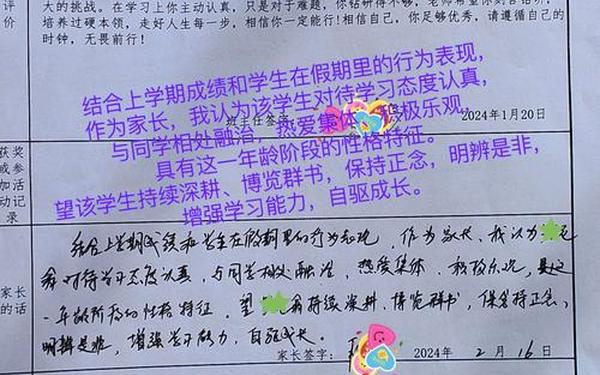 大的挑战。在学习上你主动认真，只是对于难题，你钻研得不够，老师希望你刻苦钻研，
培养过硬本领，走好人生每一步，相信你一定能行!相信自己，你足够优秀，请遵循自己的
时钟，无畏前行!
评
价
结合上学期成绩和学生在假期里的行为表现，
作为家长，我认为该学生对待学习态度认真，
与同学相处融洽，热爱集体、积极乐观，
具有这一年龄阶段的性格特征。
望该学生持续深耕、博览群书，保持正念，明辨是非，
增强学习能力，自驱成长。
班主任签字：
2024年1月20日
获奖
或参
加活
动记
录
家长
的话
结合上学期成绩和学生在假期里的行为表现，作为家长、我认为
对待学习态度认真，与同学相处融洽，热爱集体、积极乐观，
一年龄阶段的性格特征。望 持续深耕、博览群书，保持正念、
明辨是非，增强学习能力，自驱成长。
家长签字：
2024年 2 月 16 日